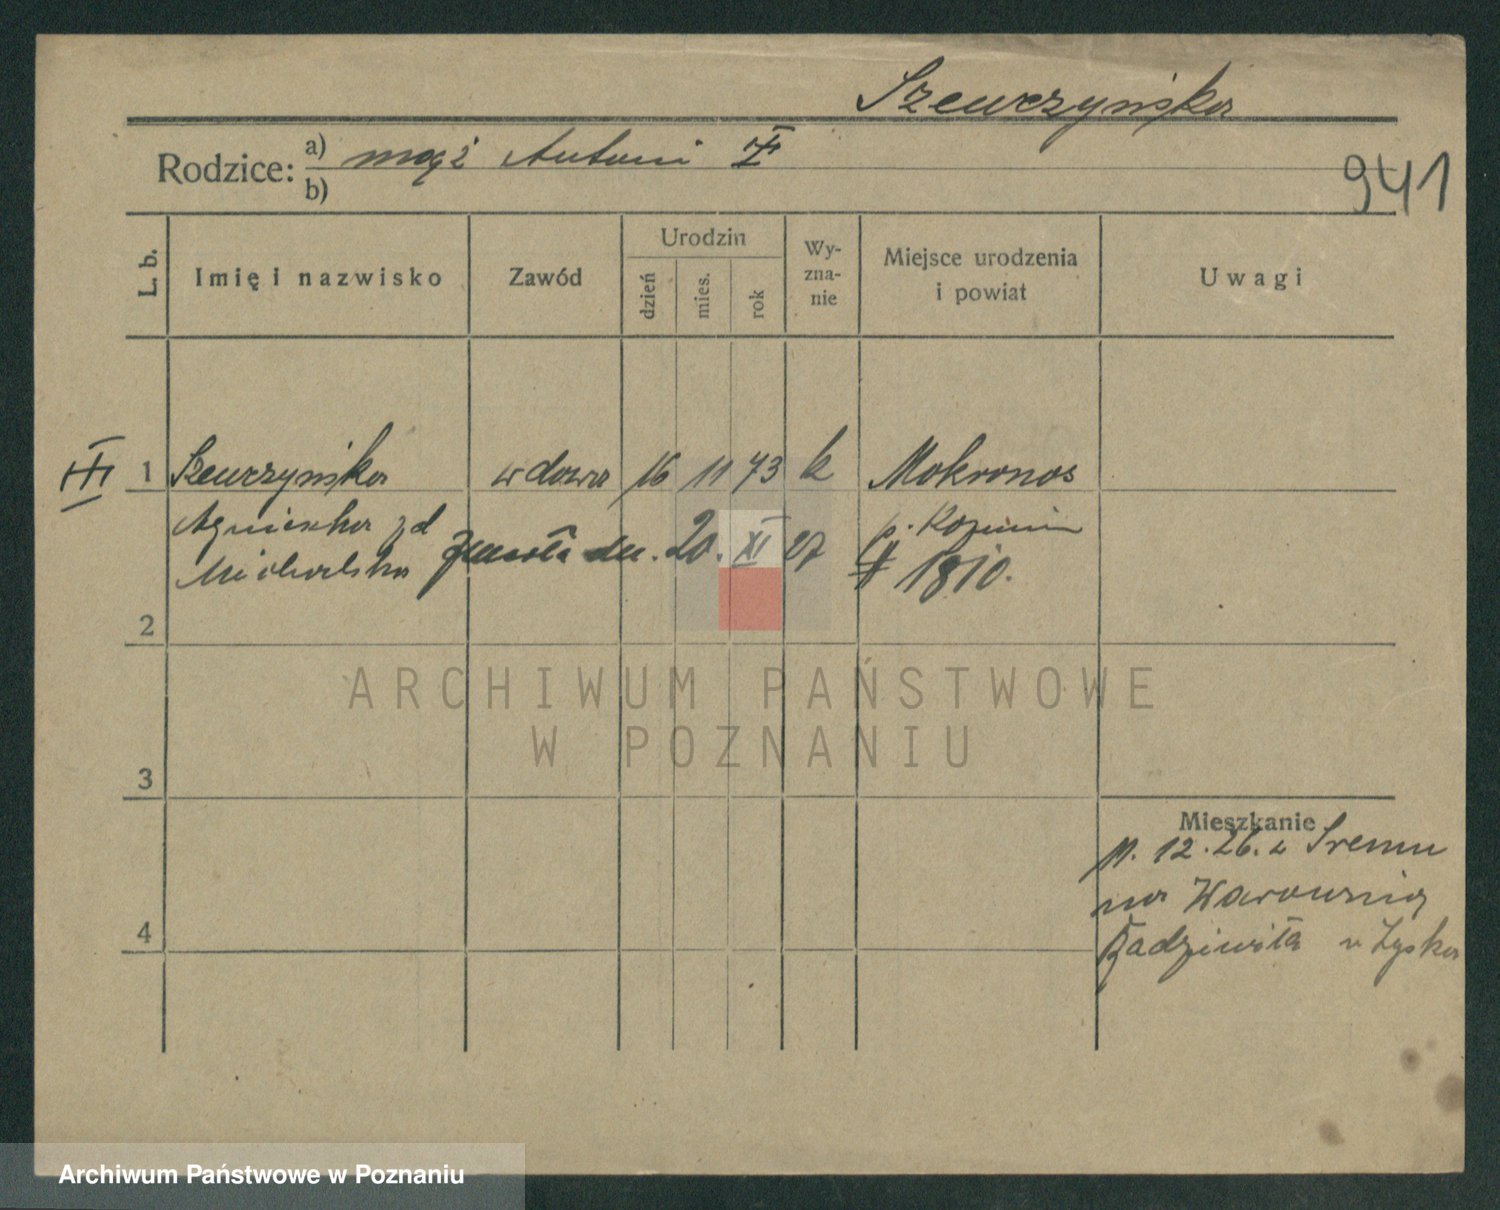 Szewczyńska
Rodzice: a) mąż Antoni
b)
941
L. b.
Imię i nazwisko
Zawód
Urodzin
dzień
mies.
rok
Wy-
zna-
nie
Miejsce urodzenia
i powiat
Uwagi
1 Szewczyńska wdowa 16 11 73 k Mokronos
Agnieszka zd p. Kozmin
Michalska zmarła dn. 20. XI 27 1810.
2
3
4
Mieszkanie
11. 12. 26. z Śremu
na Warownię
Radziwiłła u Łyska
ARCHIWUM PAŃSTWOWE
W POZNANIU
Archiwum Państwowe w Poznaniu